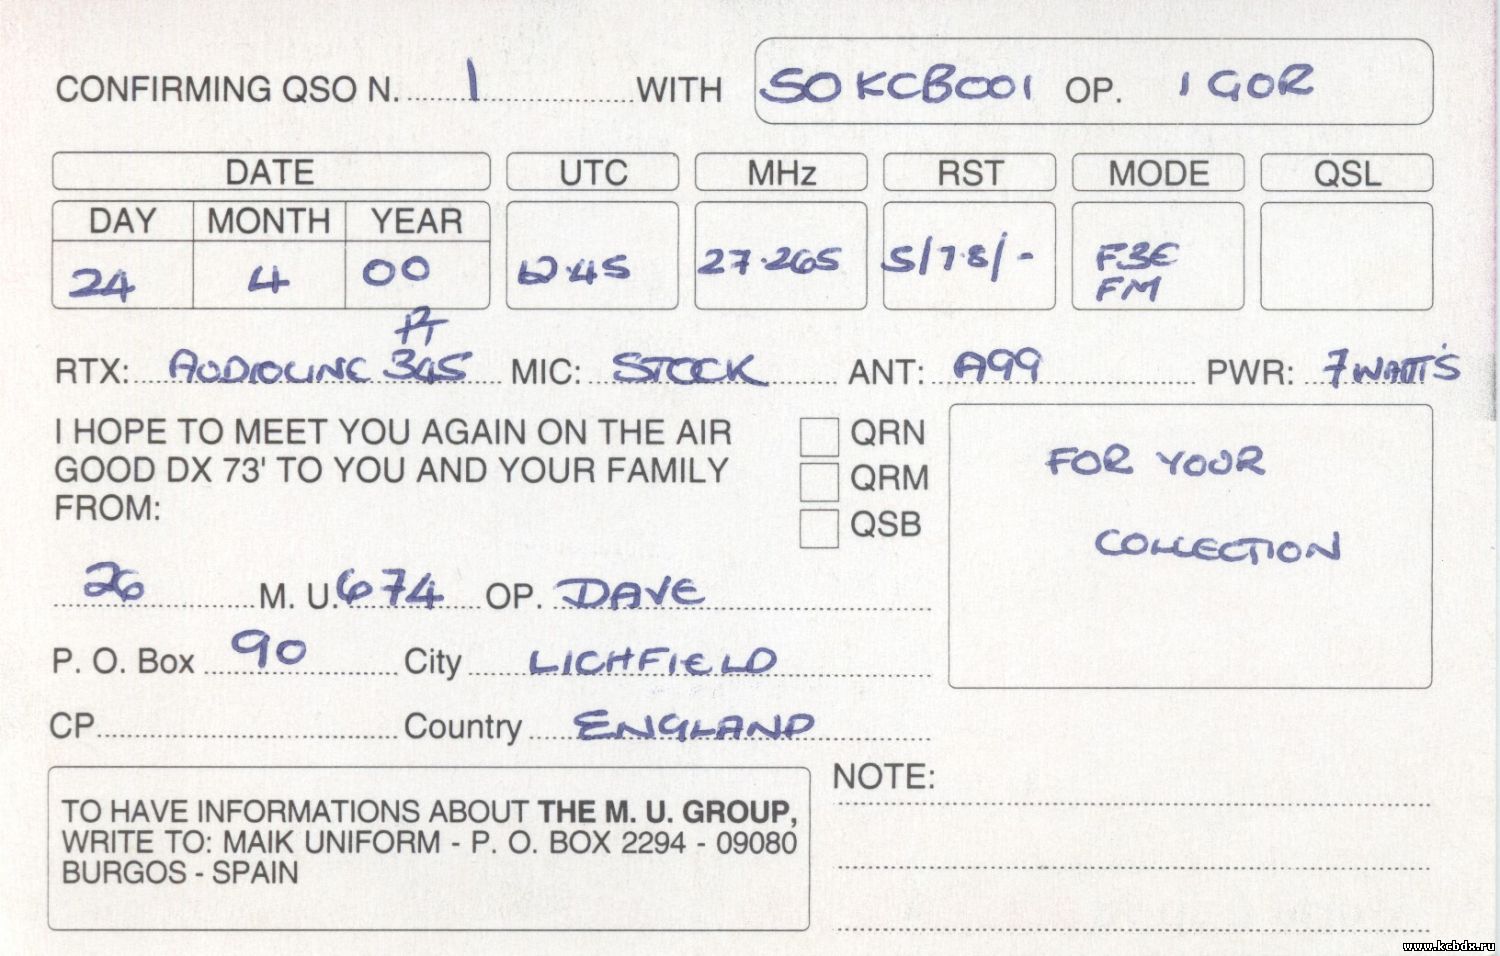 CONFIRMING QSO N. 1 WITH 50 KCB001 OP. IGOR
DATE UTC MHz RST MODE QSL
DAY MONTH YEAR
24 4 00 12.45 27.265 5/7.8/- F3E
FM
PT
RTX: AUDIOLINE 345 MIC: STOCK ANT: A99 PWR: 7 WATT'S
I HOPE TO MEET YOU AGAIN ON THE AIR
GOOD DX 73' TO YOU AND YOUR FAMILY
FROM:
QRN
QRM
QSB
FOR YOUR
COLLECTION
26 M. U. 674 OP. DAVE
P. O. Box 90 City LICHFIELD
CP Country ENGLAND
TO HAVE INFORMATIONS ABOUT THE M. U. GROUP,
WRITE TO: MAIK UNIFORM - P. O. BOX 2294 - 09080
BURGOS - SPAIN
NOTE:
www.kcbdx.ru